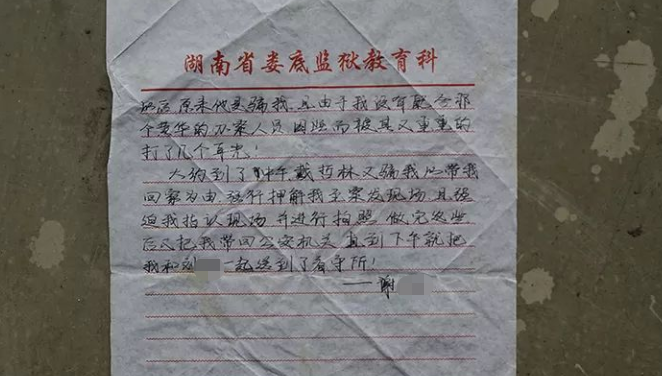 湖南省娄底监狱教育科
原来他是骗我,且由于我没有配合那
个黄华的办案人员因此而被其又重重的
打了几个耳光!
大约到了中午戴哲林又骗我以带我
回家为由,强行押解我至案发现场,且强
迫我指认现场,并进行拍照,做完这些
后又把我带回公安机关,直到下午就把
我和刘 一起送到了看守所!
——谢